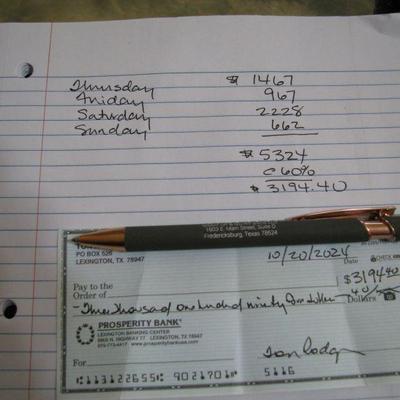 Thursday $ 1467
Friday 967
Saturday 2228
Sunday 662
$ 5324
@ 60%
$ 3194.40
1603 E. Main Street, Suite D
Fredericksburg, Texas 78624
PO BOX 526
LEXINGTON, TX 78947
10/20/2024
Pay to the
Order of
$3194.40
Three thousand one hundred ninety four dollars 40/
Dollars
PROSPERITY BANK
LEXINGTON BANKING CENTER
LEXINGTON, TX 78947
979-773-4417 www.prosperitybankusa.com
For
113122655 9021701 5116